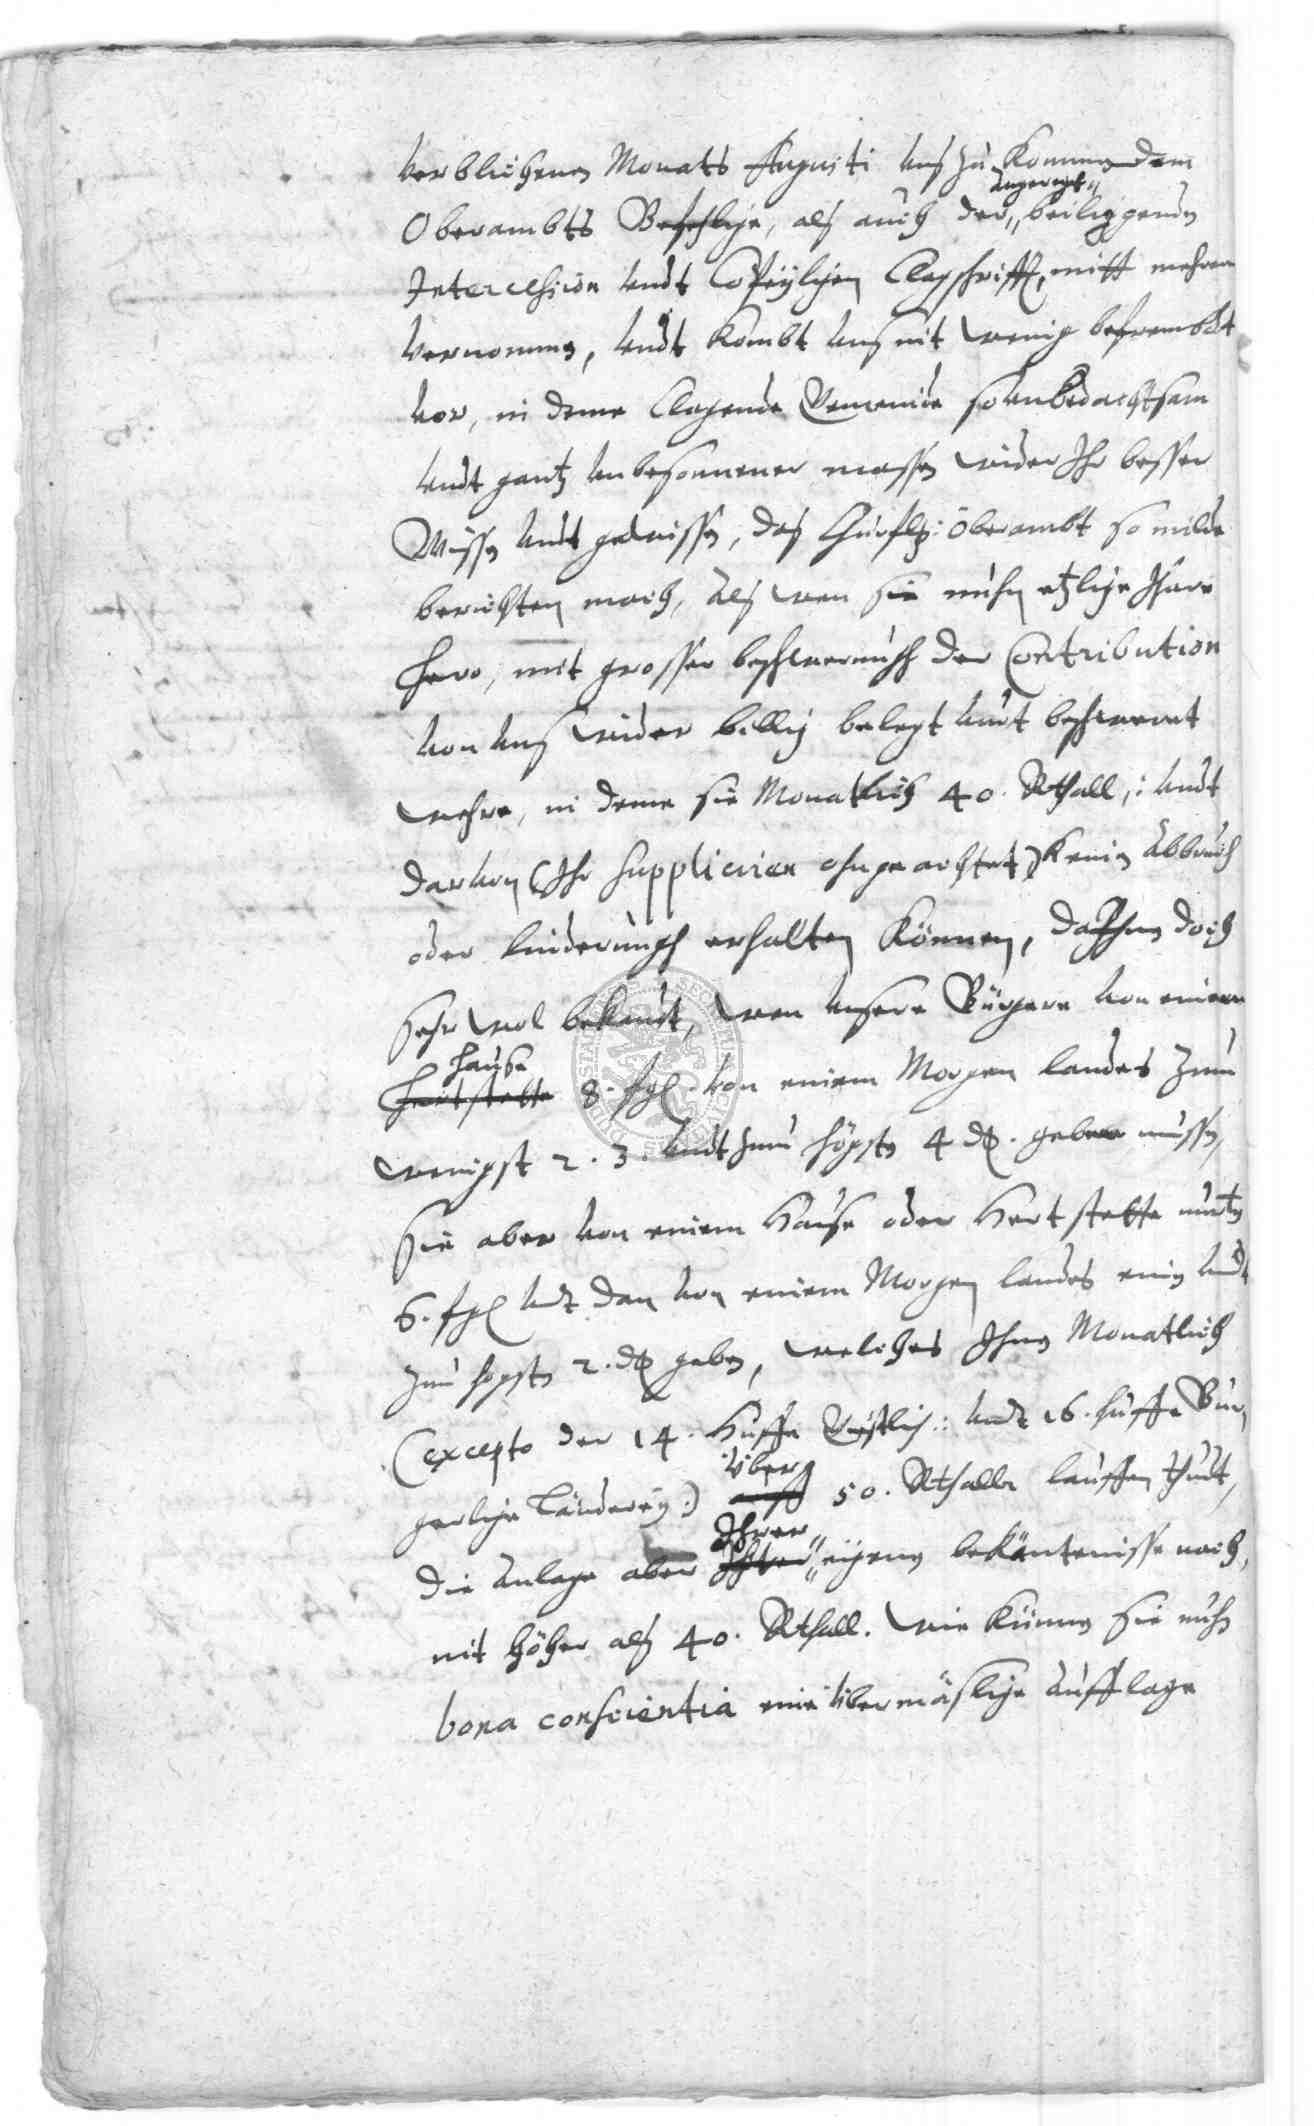 verblichenen Monats Augusti unß zu kommendem
Oberambts Befehlige, alß auch der angeregt beiliggenden
Intercession undt Copeylichen Clagschrifft, mitt mehrem
vernommen, undt kombt unß nit wenig befrembdt
vor, in deme Clagende Gemeinde so unbedachtsam
undt gantz unbesonnener massen wider Ihr besser
Wissen undt gewissen, das Churfl: Oberambt so milde
berichten mach, alß wen sie nuhn etzliche Jhare
hero, mit grosser beschwernuß der Contribution
von unß wider billig belegt undt beschweret
wehre, in deme sie Monatlich 40. Rthall,: undt
darvon (Ihr suppliciren ohngeachtet) kein abbruch
oder linderungh erhalten können, da Ihnen doch
sehr wol bekandt, wen unsere Bürgere von einem
hause
Hertstette 8. von einem Morgen landes zum
wenigst 2. 3. undt zum högsten 4 geben mussen,
sie aber von einem Hause oder Hertstette nur
6. undt dan von einem Morgen landes ein undt
zum högsten 2. geben, welches Ihnen Monatlich
(excepto der 14. Huffe undt 16. huffe Bur,
über
gerliche Länderey:) auff 50. Rthaller lauffen thudt,
Ihrer
die anlage aber eigenen bekäntenisse nach,
nit höher alß 40. Rthall. wie können sie nuhn
bona conscientia eine übermäslige aufflage